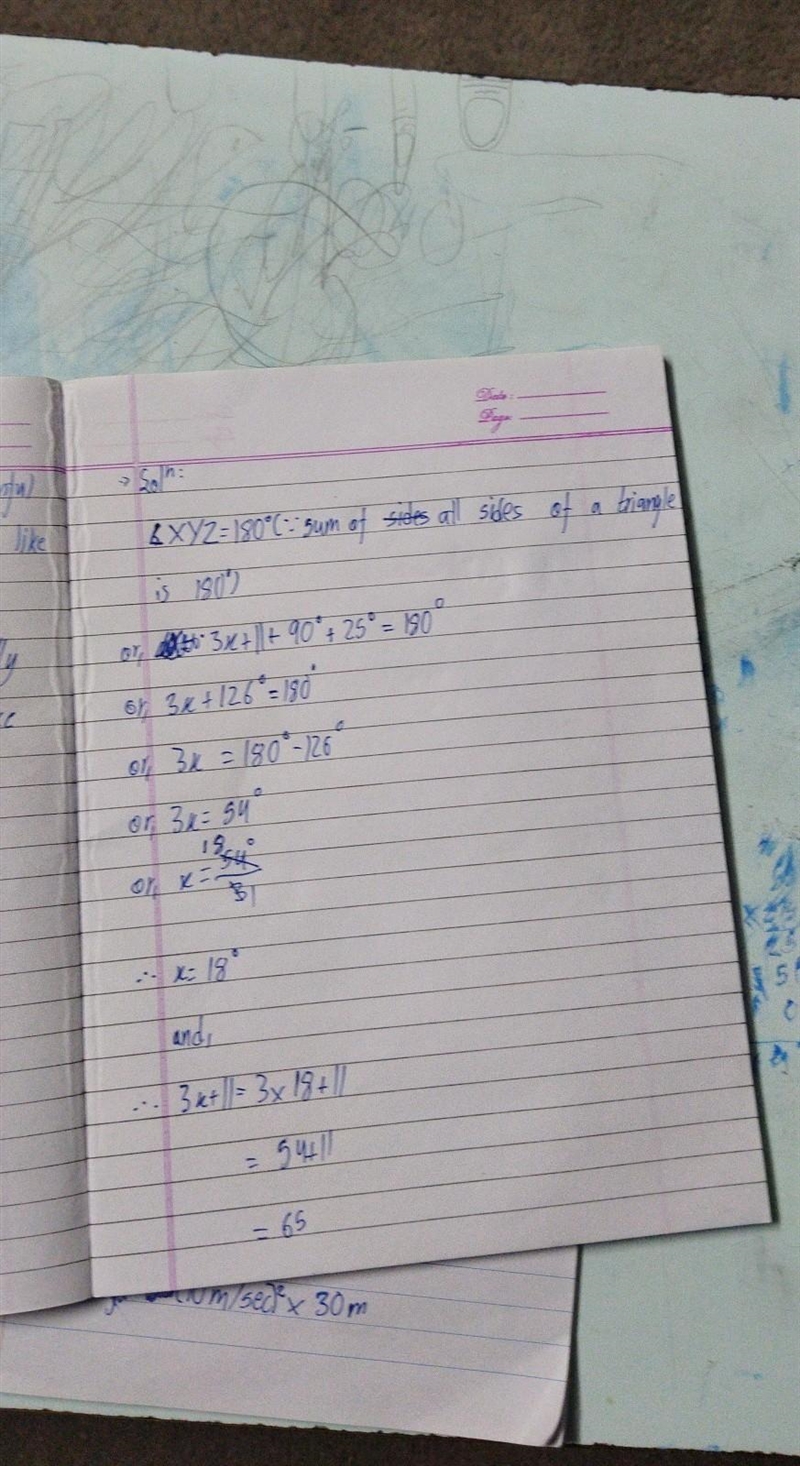 Date:
Page:
→ Solⁿ:
∠XYZ=180°(∵ sum of sides all sides of a triangle
is 180°)
or, 3x+11+90°+25°=180°
or, 3x+126°=180°
or, 3x =180°-126°
or, 3x= 54°
or, x= 18 54° / 3 1
∴ x= 18°
and,
∴ 3x+11= 3x18+11
= 54+11
= 65
like
ly
m/sec)² x 30m
5
0